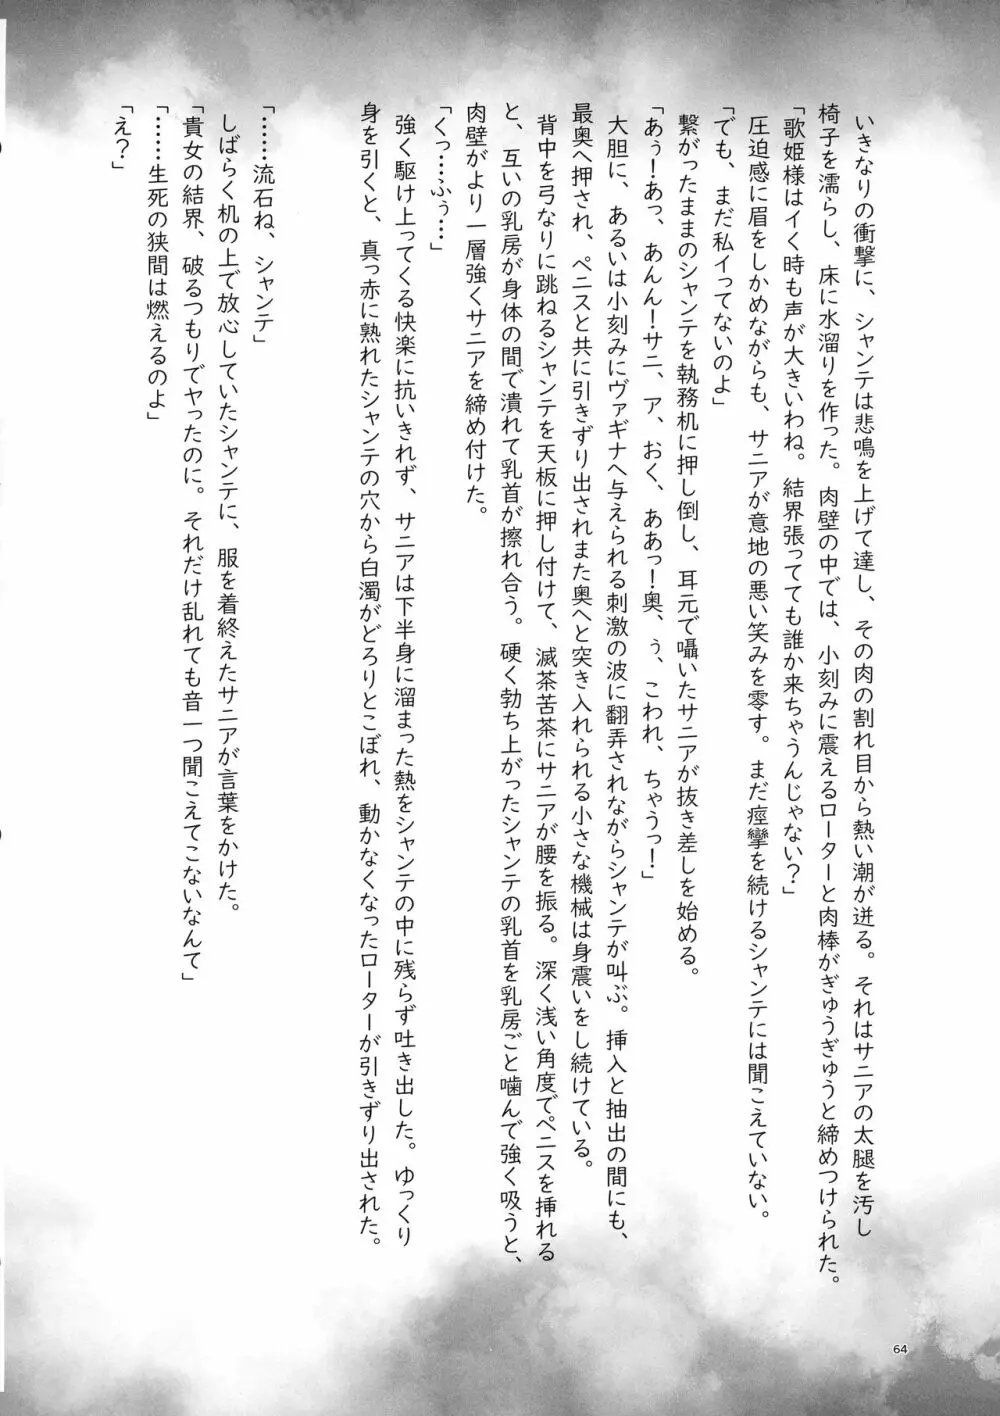 いきなりの衝撃に、シャンテは悲鳴を上げて達し、その肉の割れ目から熱い潮が迸る。それはサニアの太腿を汚し
椅子を濡らし、床に水溜りを作った。肉壁の中では、小刻みに震えるローターと肉棒がぎゅうぎゅうと締めつけられた。
「歌姫様はイく時も声が大きいわね。結界張ってても誰か来ちゃうんじゃない?」
圧迫感に眉をしかめながらも、サニアが意地の悪い笑みを零す。まだ痙攣を続けるシャンテには聞こえていない。
「でも、まだ私イってないのよ」
繋がったままのシャンテを執務机に押し倒し、耳元で囁いたサニアが抜き差しを始める。
「あぅ!あっ、あん!サニ、ア、おく、ああっ!奥、ぅ、こわれ、ちゃうっ!」
大胆に、あるいは小刻みにヴァギナへ与えられる刺激の波に翻弄されながらシャンテが叫ぶ。挿入と抽出の間にも、
最奥へ押され、ペニスと共に引きずり出されまた奥へと突き入れられる小さな機械は身震いをし続けている。
背中を弓なりに跳ねるシャンテを天板に押し付けて、滅茶苦茶にサニアが腰を振る。深く浅い角度でペニスを挿れる
と、互いの乳房が身体の間で潰れて乳首が擦れ合う。硬く勃ち上がったシャンテの乳首を乳房ごと噛んで強く吸うと、
肉壁がより一層強くサニアを締め付けた。
「くっ…ふぅ…」
強く駆け上ってくる快楽に抗いきれず、サニアは下半身に溜まった熱をシャンテの中に残らず吐き出した。ゆっくり
身を引くと、真っ赤に熟れたシャンテの穴から白濁がどろりとこぼれ、動かなくなったローターが引きずり出された。
「……流石ね、シャンテ」
しばらく机の上で放心していたシャンテに、服を着終えたサニアが言葉をかけた。
「貴女の結界、破るつもりでヤったのに。それだけ乱れても音一つ聞こえてこないなんて」
「……生死の狭間は燃えるのよ」
「え?」
64